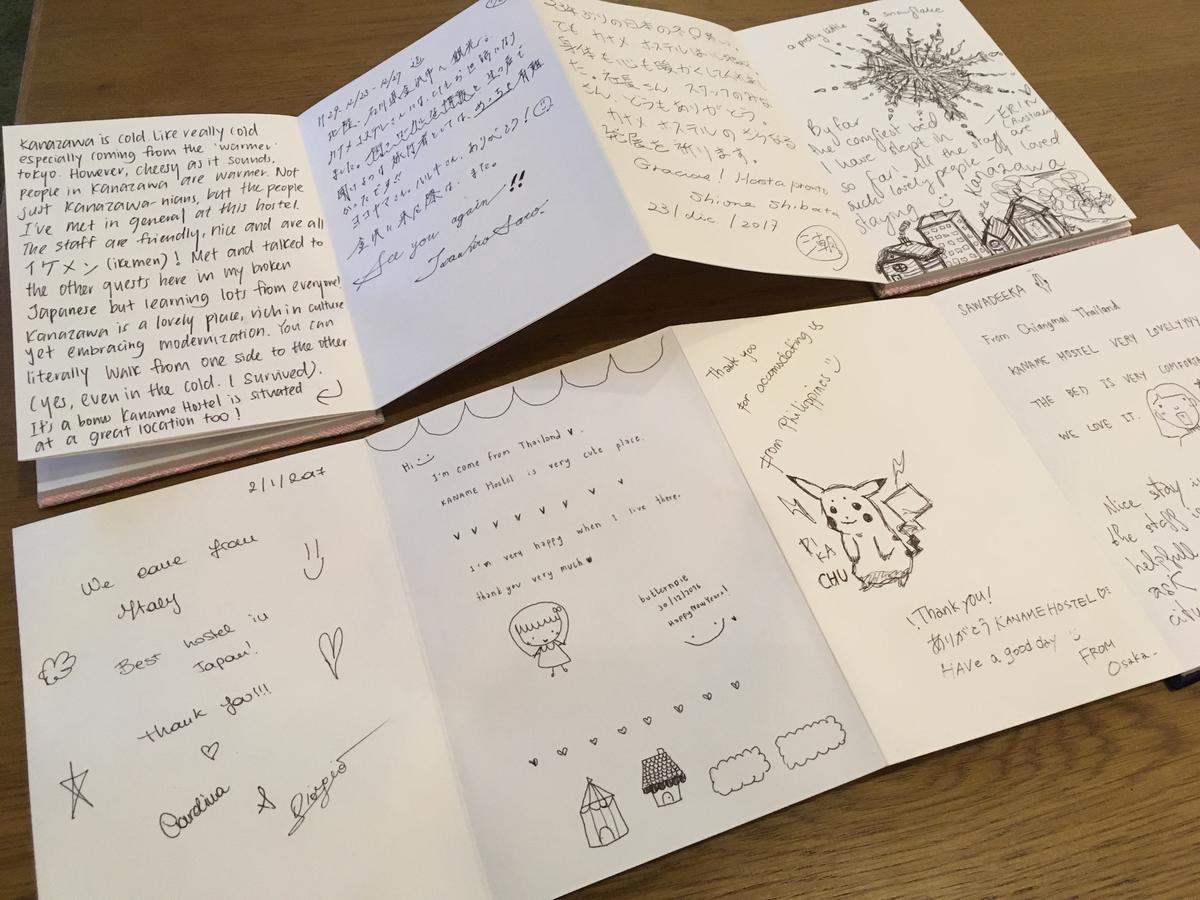 Kanazawa is cold. Like really cold
especially coming from the 'warmer'
tokyo. However, cheesy as it sounds,
people in Kanazawa are warmer. Not
just Kanazawa-nians, but the people
I've met in general at this hostel.
The staff are friendly, nice and are all
イケメン (ikemen)! Met and talked to
the other guests here in my broken
Japanese but learning lots from everyone!
Kanazawa is a lovely place, rich in culture
yet embracing modernization. You can
literally walk from one side to the other
(yes, even in the cold. I survived).
It's a bonus Kaname Hostel is situated
at a great location too!
金沢に来た際は、また。
See you again!!
23年ぶりの日本の冬
でも カナメ ホステルは
身体も心も暖かくしてくれまし
た。社長さん スタッフのみな
さん、どうもありがとう。
カナメ ホステルの さらなる
発展を祈ります。
Gracias! Hasta pronto
Shione Shibata
23/dic./2017
潮
a pretty little
snowflake
- ERIN
(Australia)
By far
the comfiest bed
I have slept in
so far. All the staff are
such lovely people - I loved
staying
Kanazawa
2/1/2017
We came from
Italy
Best hostel in
Japan!
thank you!!!
Carolina & Giorgio
Hi
I'm come from Thailand ♥.
KANAME Hostel is very cute place.
I'm very happy when I live there.
thank you very much ♥
butternose
30/12/2016
Happy New Year!
Thank you
for accomodating us
from Philippines
PI
KA
CHU
! Thank you!
ありがとう KANAME HOSTEL
HAVE a good day
FROM
Osaka.
SAWADEEKA
From Chiangmai Thailand
KANAME HOSTEL VERY LOVELYYYY
THE BED IS VERY
WE LOVE IT.
Nice stay
the staff
helpfull
ask